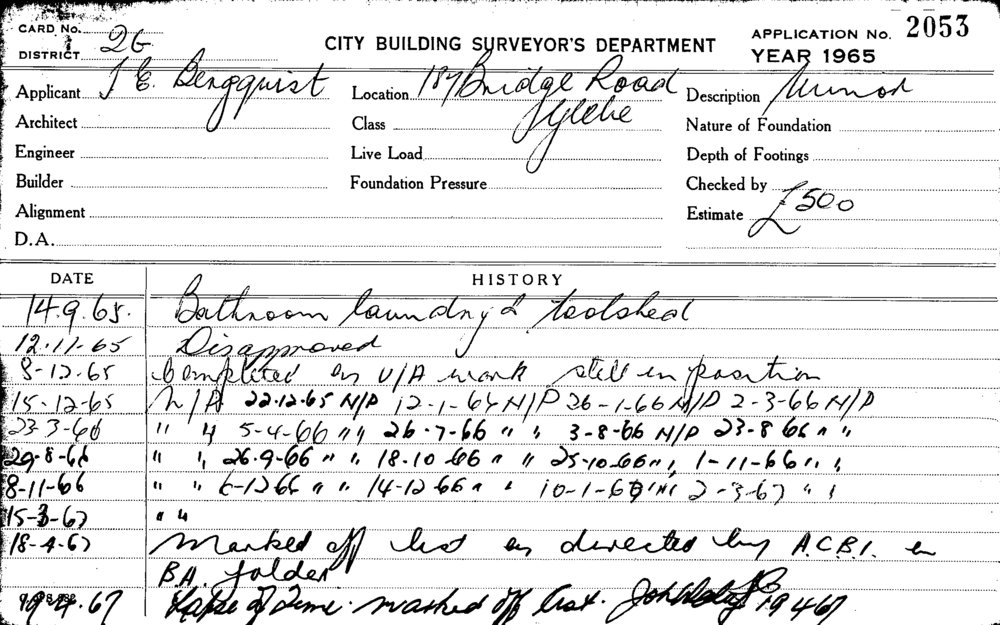 CARD No.
DISTRICT 2G
CITY BUILDING SURVEYOR'S DEPARTMENT
APPLICATION No. 2053
YEAR 1965
Applicant J E. Bergquist
Location 187 Bridge Road
Glebe
Description Minor
Architect
Class
Nature of Foundation
Engineer
Live Load
Depth of Footings
Builder
Foundation Pressure
Checked by
Alignment
Estimate £500
D.A.
DATE HISTORY
14.9.65. Bathroom laundry & toolshed
12.11.65 Disapproved
8-12-65 Completed as U/A work still in position
15-12-65 N/P 22-12-65 N/P 12-1-66 N/P 26-1-66 N/P 2-3-66 N/P
23-3-66 " " 5-4-66 " " 26-7-66 " " 3-8-66 N/P 23-8-66 " "
29-8-66 " " 26-9-66 " " 18-10-66 " " 25-10-66 " " 1-11-66 " "
8-11-66 " " 6-12-66 " " 14-12-66 " " 10-1-67 " " 2-3-67 " "
15-3-67 " "
18-4-67 Marked off list as directed by A.C.B.I. in
B.A. folder
19.4.67 Lapse of time. marked off list. 19 4 67